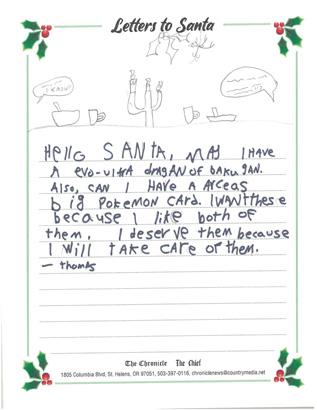 Letters to Santa
Hello SANTA, MAY I HAVE
A evo-ultra dragAN of bakugAN.
Also, CAN I HAVE A Arceas
big Pokemon card. I WANT these
because I like both of
them. I deserve them because
I will TAKE CAre of them.
- thomas
The Chronicle The Chief
1805 Columbia Blvd, St. Helens, OR 97051, 503-397-0116, chroniclenews@countrymedia.net